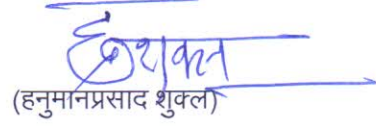 (हनुमानप्रसाद शुक्ल)